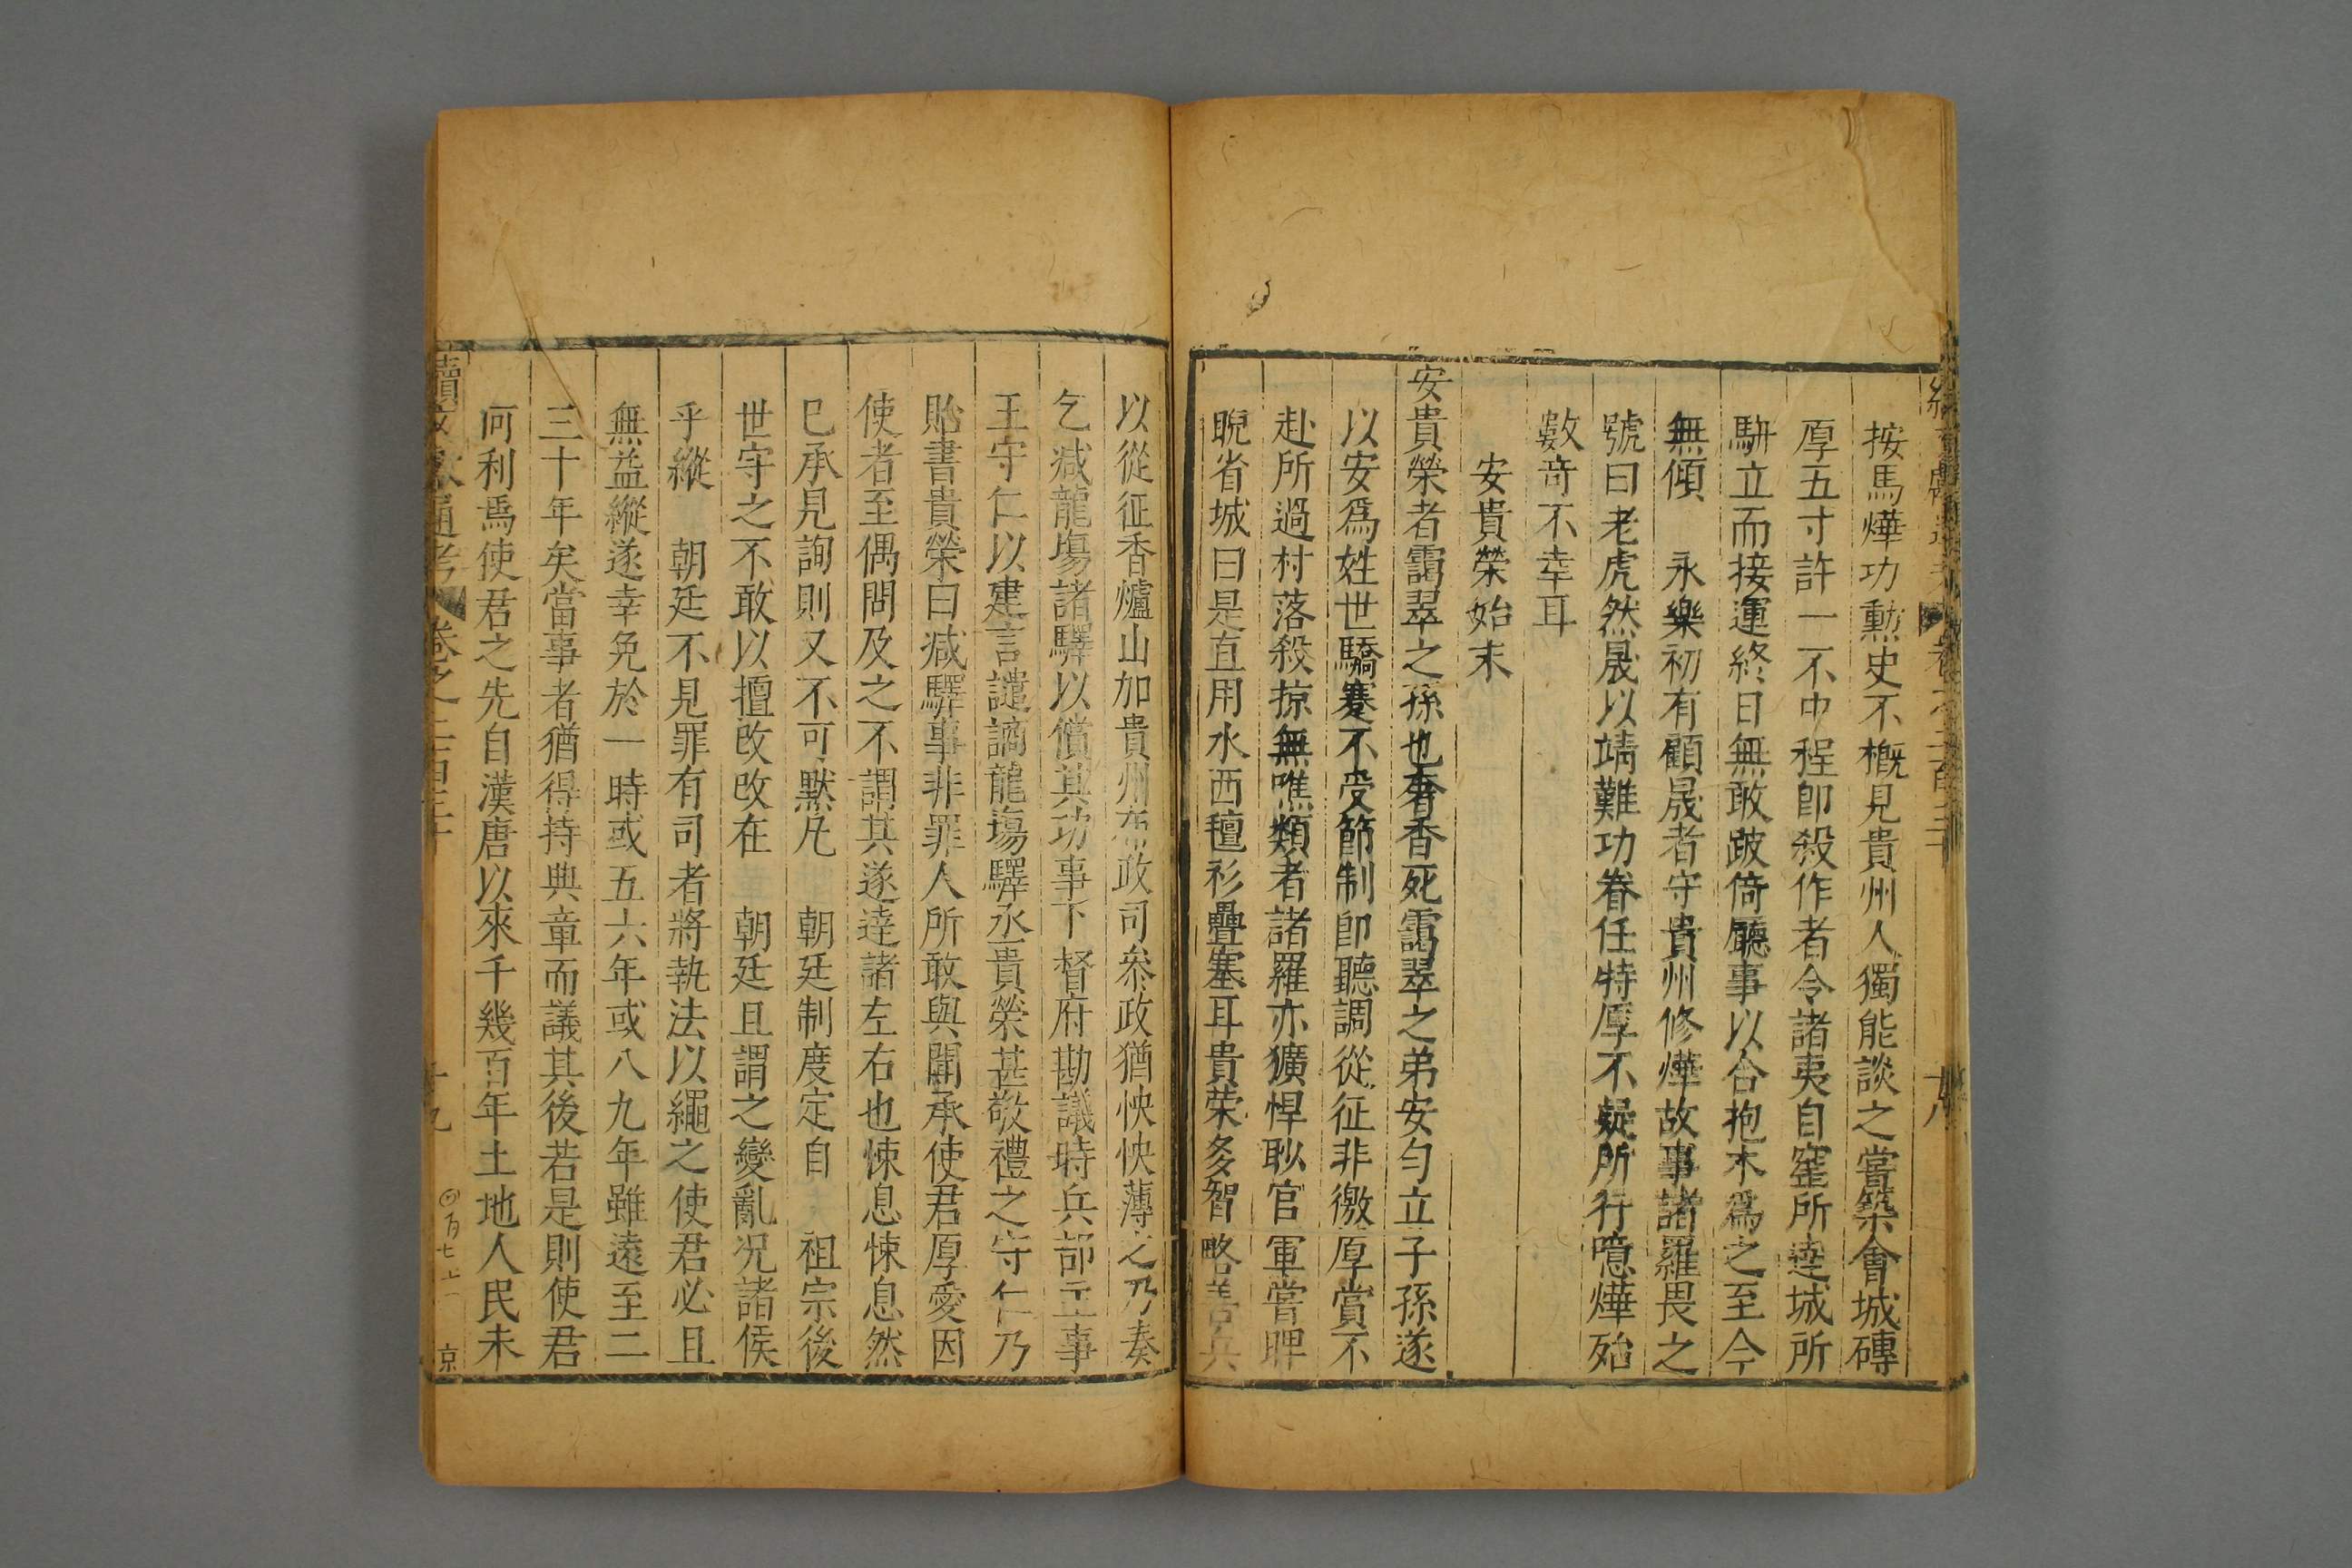 按馬燁功勲史不概見貴州人獨能談之嘗築會城磚
厚五寸許一不中程卽殺作者令諸夷自窰所逹城所
駢立而接運終日無敢跛倚廳事以合抱木爲之至今
無傾　永樂初有顧晟者守貴州修燁故事諸羅畏之
號曰老虎然晟以靖難功眷任特厚不疑所行噫燁殆
數竒不幸耳
安貴榮始末
安貴榮者靄翠之孫也奢香死靄翠之弟安勻立子孫遂
以安爲姓世驕蹇不受節制卽聽調從征非徼厚賞不
赴所過村落殺掠無噍類者諸羅亦獷悍耿官軍嘗睥
睨省城曰是直用水西氊衫疊塞耳貴荣多智略善兵
以從征香爐山加貴州布政司叅政猶怏怏薄之乃奏
乞减龍塲諸驛以償其功事下督府勘議時兵部主事
王守仁以建言譴謫龍塲驛丞貴榮甚敬禮之守仁乃
貽書貴榮曰减驛事非罪人所敢與聞承使君厚愛因
使者至偶問及之不謂其遂逹諸左右也悚息悚息然
巳承見詢則又不可默凡　朝廷制度定自　祖宗後
世守之不敢以擅改改在　朝廷且謂之變亂况諸侯
乎縱　朝廷不見罪有司者將執法以繩之使君必且
無益縱遂幸免於一時或五六年或八九年雖遠至二
三十年矣當事者猶得持典章而議其後若是則使君
何利焉使君之先自漢唐以來千幾百年土地人民未
續文獻通考　卷之二百三十　十九